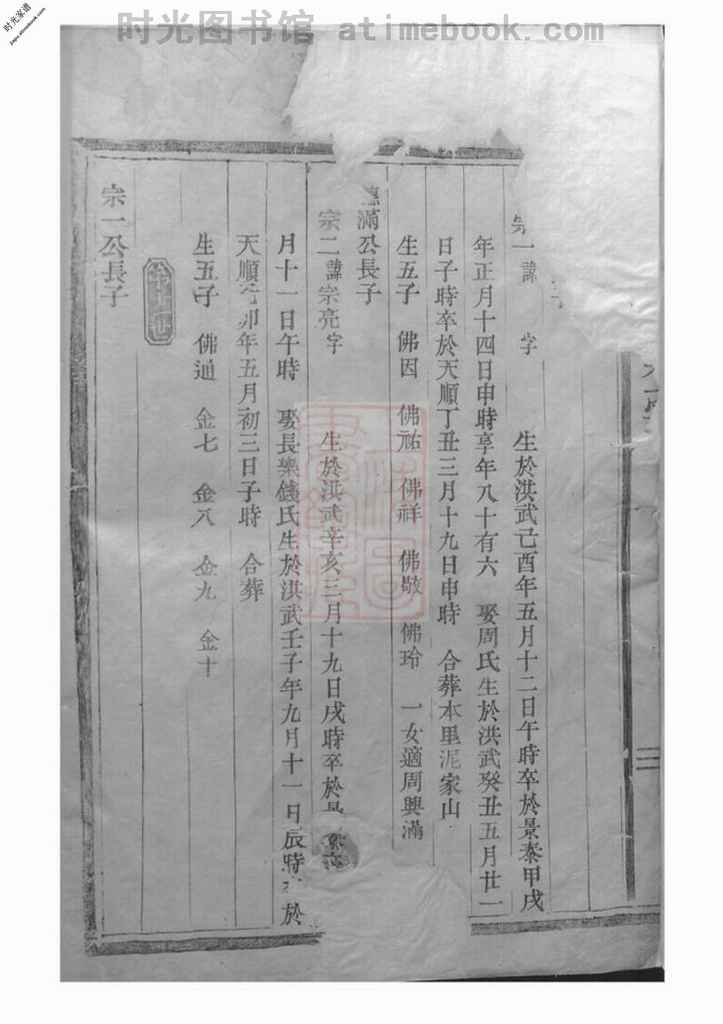 时光图书馆 atimebook.com
时光家谱
jiapu.atimebook.com
宗一諱 字 生於洪武己酉年五月十二日午時卒於景泰甲戌
年正月十四日申時享年八十有六 娶周氏生於洪武癸丑五月廿一
日子時卒於天順丁丑三月十九日申時 合葬本里泥家山
生五子 佛因 佛祐 佛祥 佛敬 佛玲 一女適周興滿
滿公長子
宗二諱宗亮字 生於洪武辛亥三月十九日戌時卒於
月十一日午時 娶長樂錢氏生於洪武壬子年九月十一日辰時 於
天順 卯年五月初三日子時 合葬
生五子 佛通 金七 金八 金九 金十
世
宗一公長子